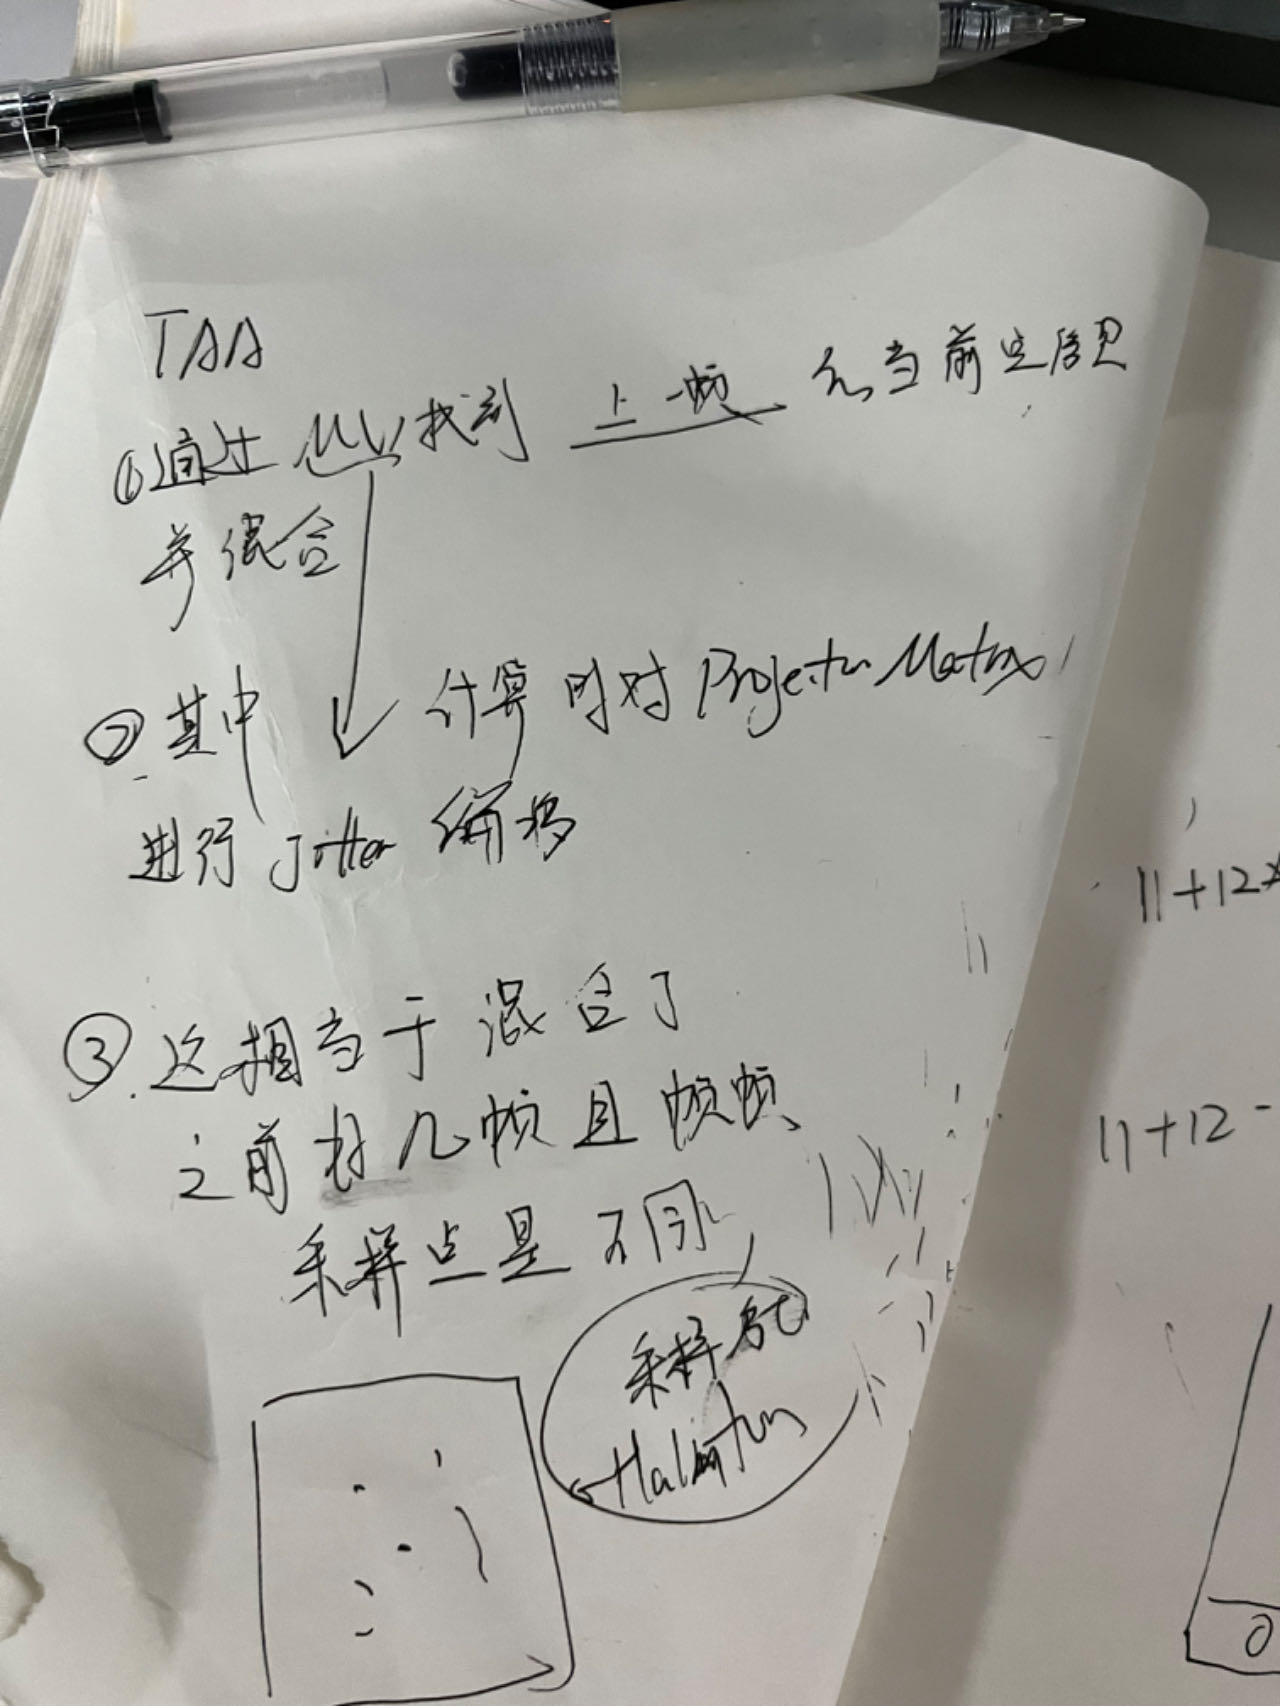 TAA
①通过 MV 找到 上一帧 当前
并混合
②其中 计算时对 Projection Matrix
进行 Jitter 偏移
③这相当于混合了
之前好几帧且帧帧
采样点是不同
采样
Halton
11+12
11+12-
0